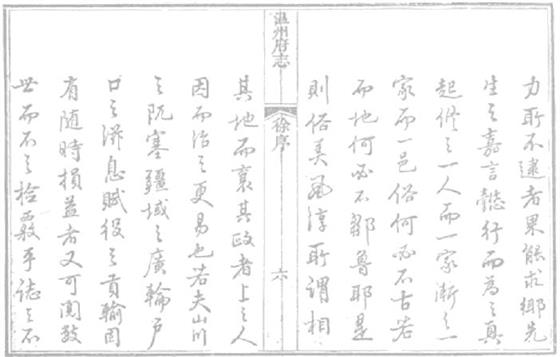 力所不逮者果能求鄉先
生之嘉言懿行而爲之興
起修之一人而一家漸之一
家而一邑俗何必不古若
而地何必不鄒魯耶是
則俗美風淳所謂相
溫州府志
徐序
六
其地而襄其政者上之人
因而治之更易也若夫山川
之阨塞疆域之廣輪戶
口之滋息賦役之貢輸固
有隨時損益者又可闕致
世而不之檢覈乎誌之不